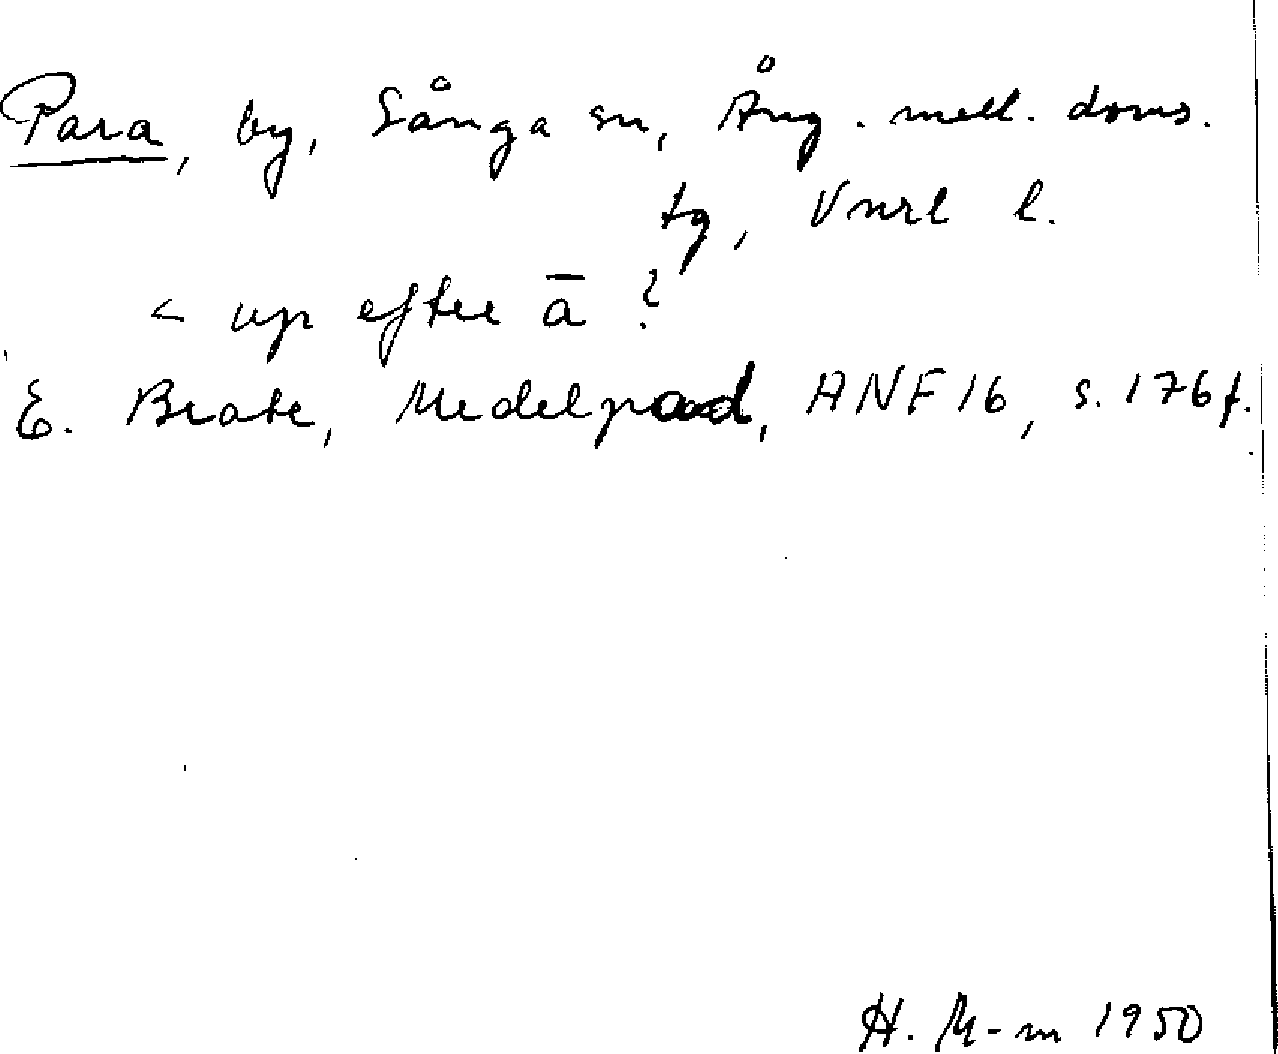 Para, by, Sånga sn, Ång. mell. doms.
tg, Vnrl l.
< up efter ā ?
E. Brate, Medelpad, ANF 16, s. 176 f.
H. M-m 1950